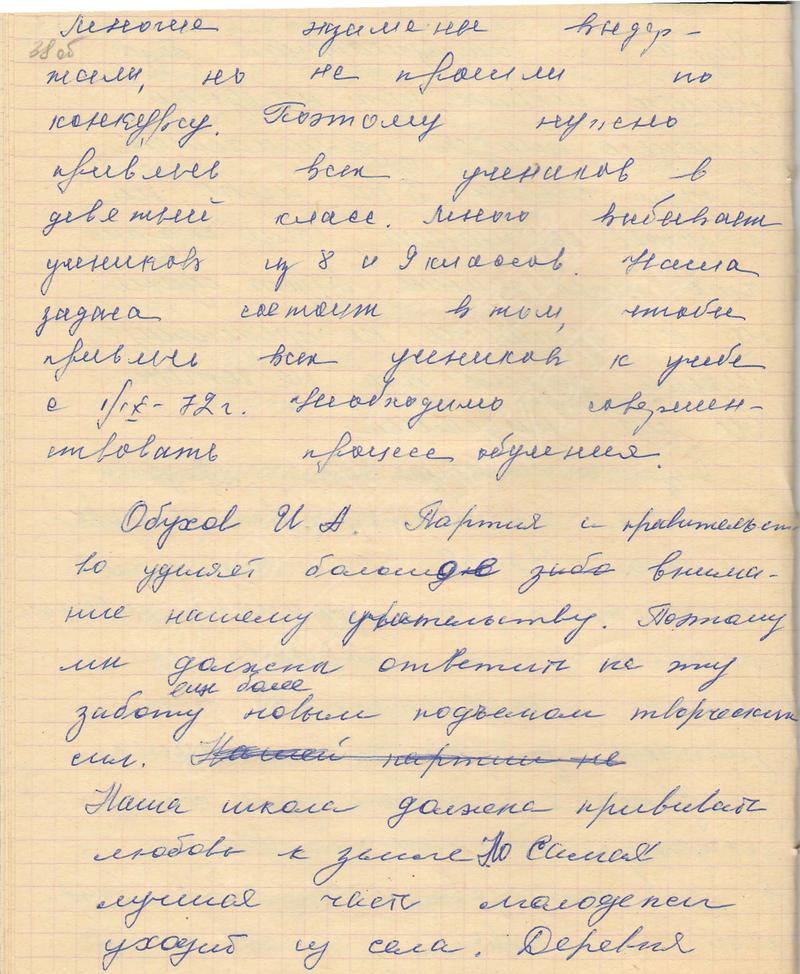 38 об
Многие экзамены выдер-
жали, но не прошли по
конкурсу. Поэтому нужно
привлечь всех учеников в
девятый класс. Много выбывает
учеников из 8 и 9 классов. Наша
задача состоит в том, чтобы
привлечь всех учеников к учебе
с 1/IX-72 г. Необходимо совершен-
ствовать процесс обучения.
Обухов И А. Партия и правительст-
во уделяет большое внима-
ние нашему учительству. Поэтому
мы должны ответить на эту
еще более
заботу новым подъемом творческих
сил. Нашей партии не
Наша школа должна прививать
любовь к земле Но Самая
лучшая часть молодежи
уходит из села. Деревня